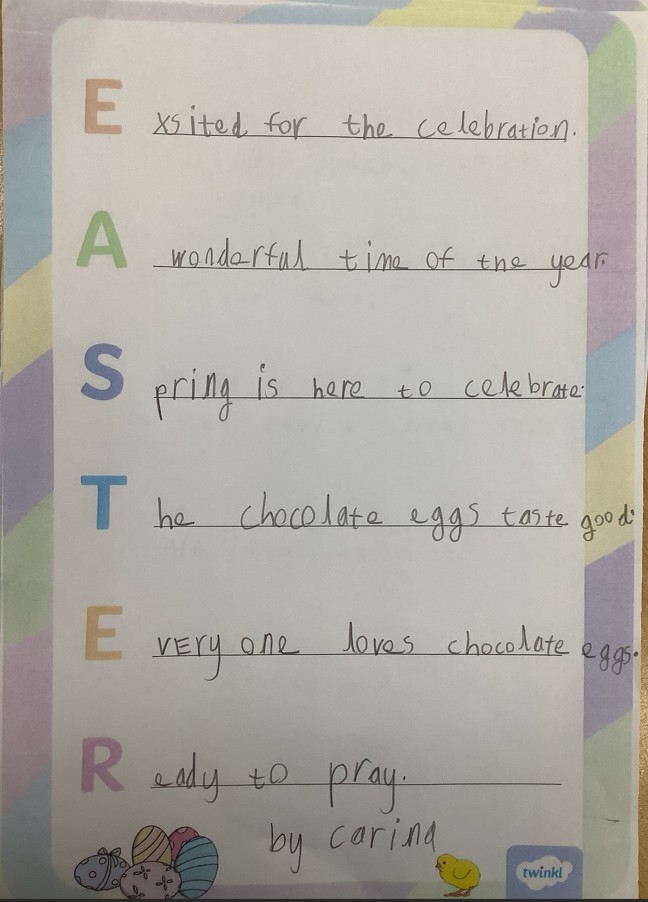 Exsited for the celebration.
A wonderful time of the year.
Spring is here to celebrate.
The chocolate eggs taste good.
EVERy one loves chocolate eggs.
Ready to pray.
by carina
twinkl